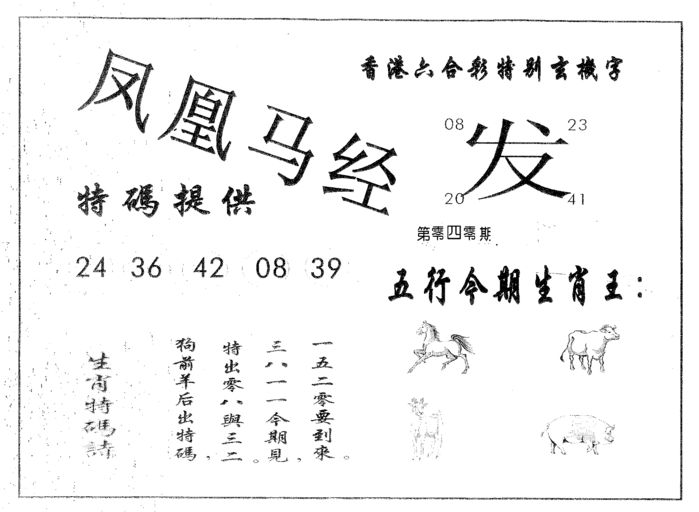 凤凰马经
香港六合彩特别玄機字
08 23
发
20 41
第零四零期
特碼提供
24 36 42 08 39
五行今期生肖王：
一五二零要到來。
三八一一今期見，
特出零八與三二。
狗前羊后出特碼，
生肖特碼詩